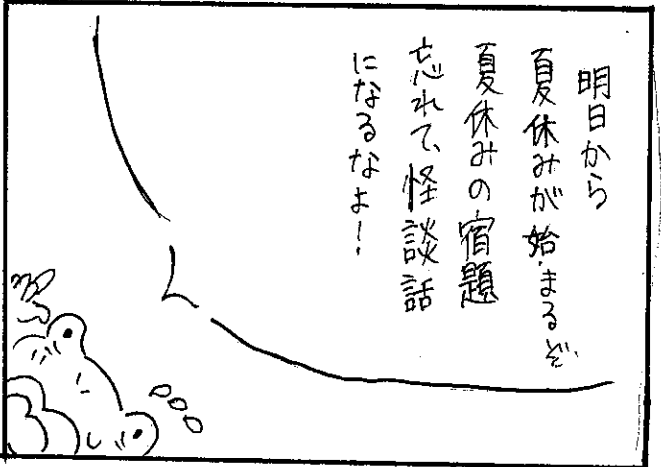 明日から
夏休みが始まるぞ
夏休みの宿題
忘れて、怪談話
になるなよ!